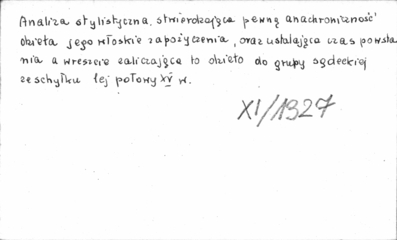 Analiza stylistyczna, stwierdzająca pewną anachroniczność
dzieła jego włoskie zapożyczenia, oraz ustalająca czas powsta
nia a wreszcie zaliczająca to dzieło do grupy sądeckiej
ze schyłku Iej połowy XV w.
XI/1327